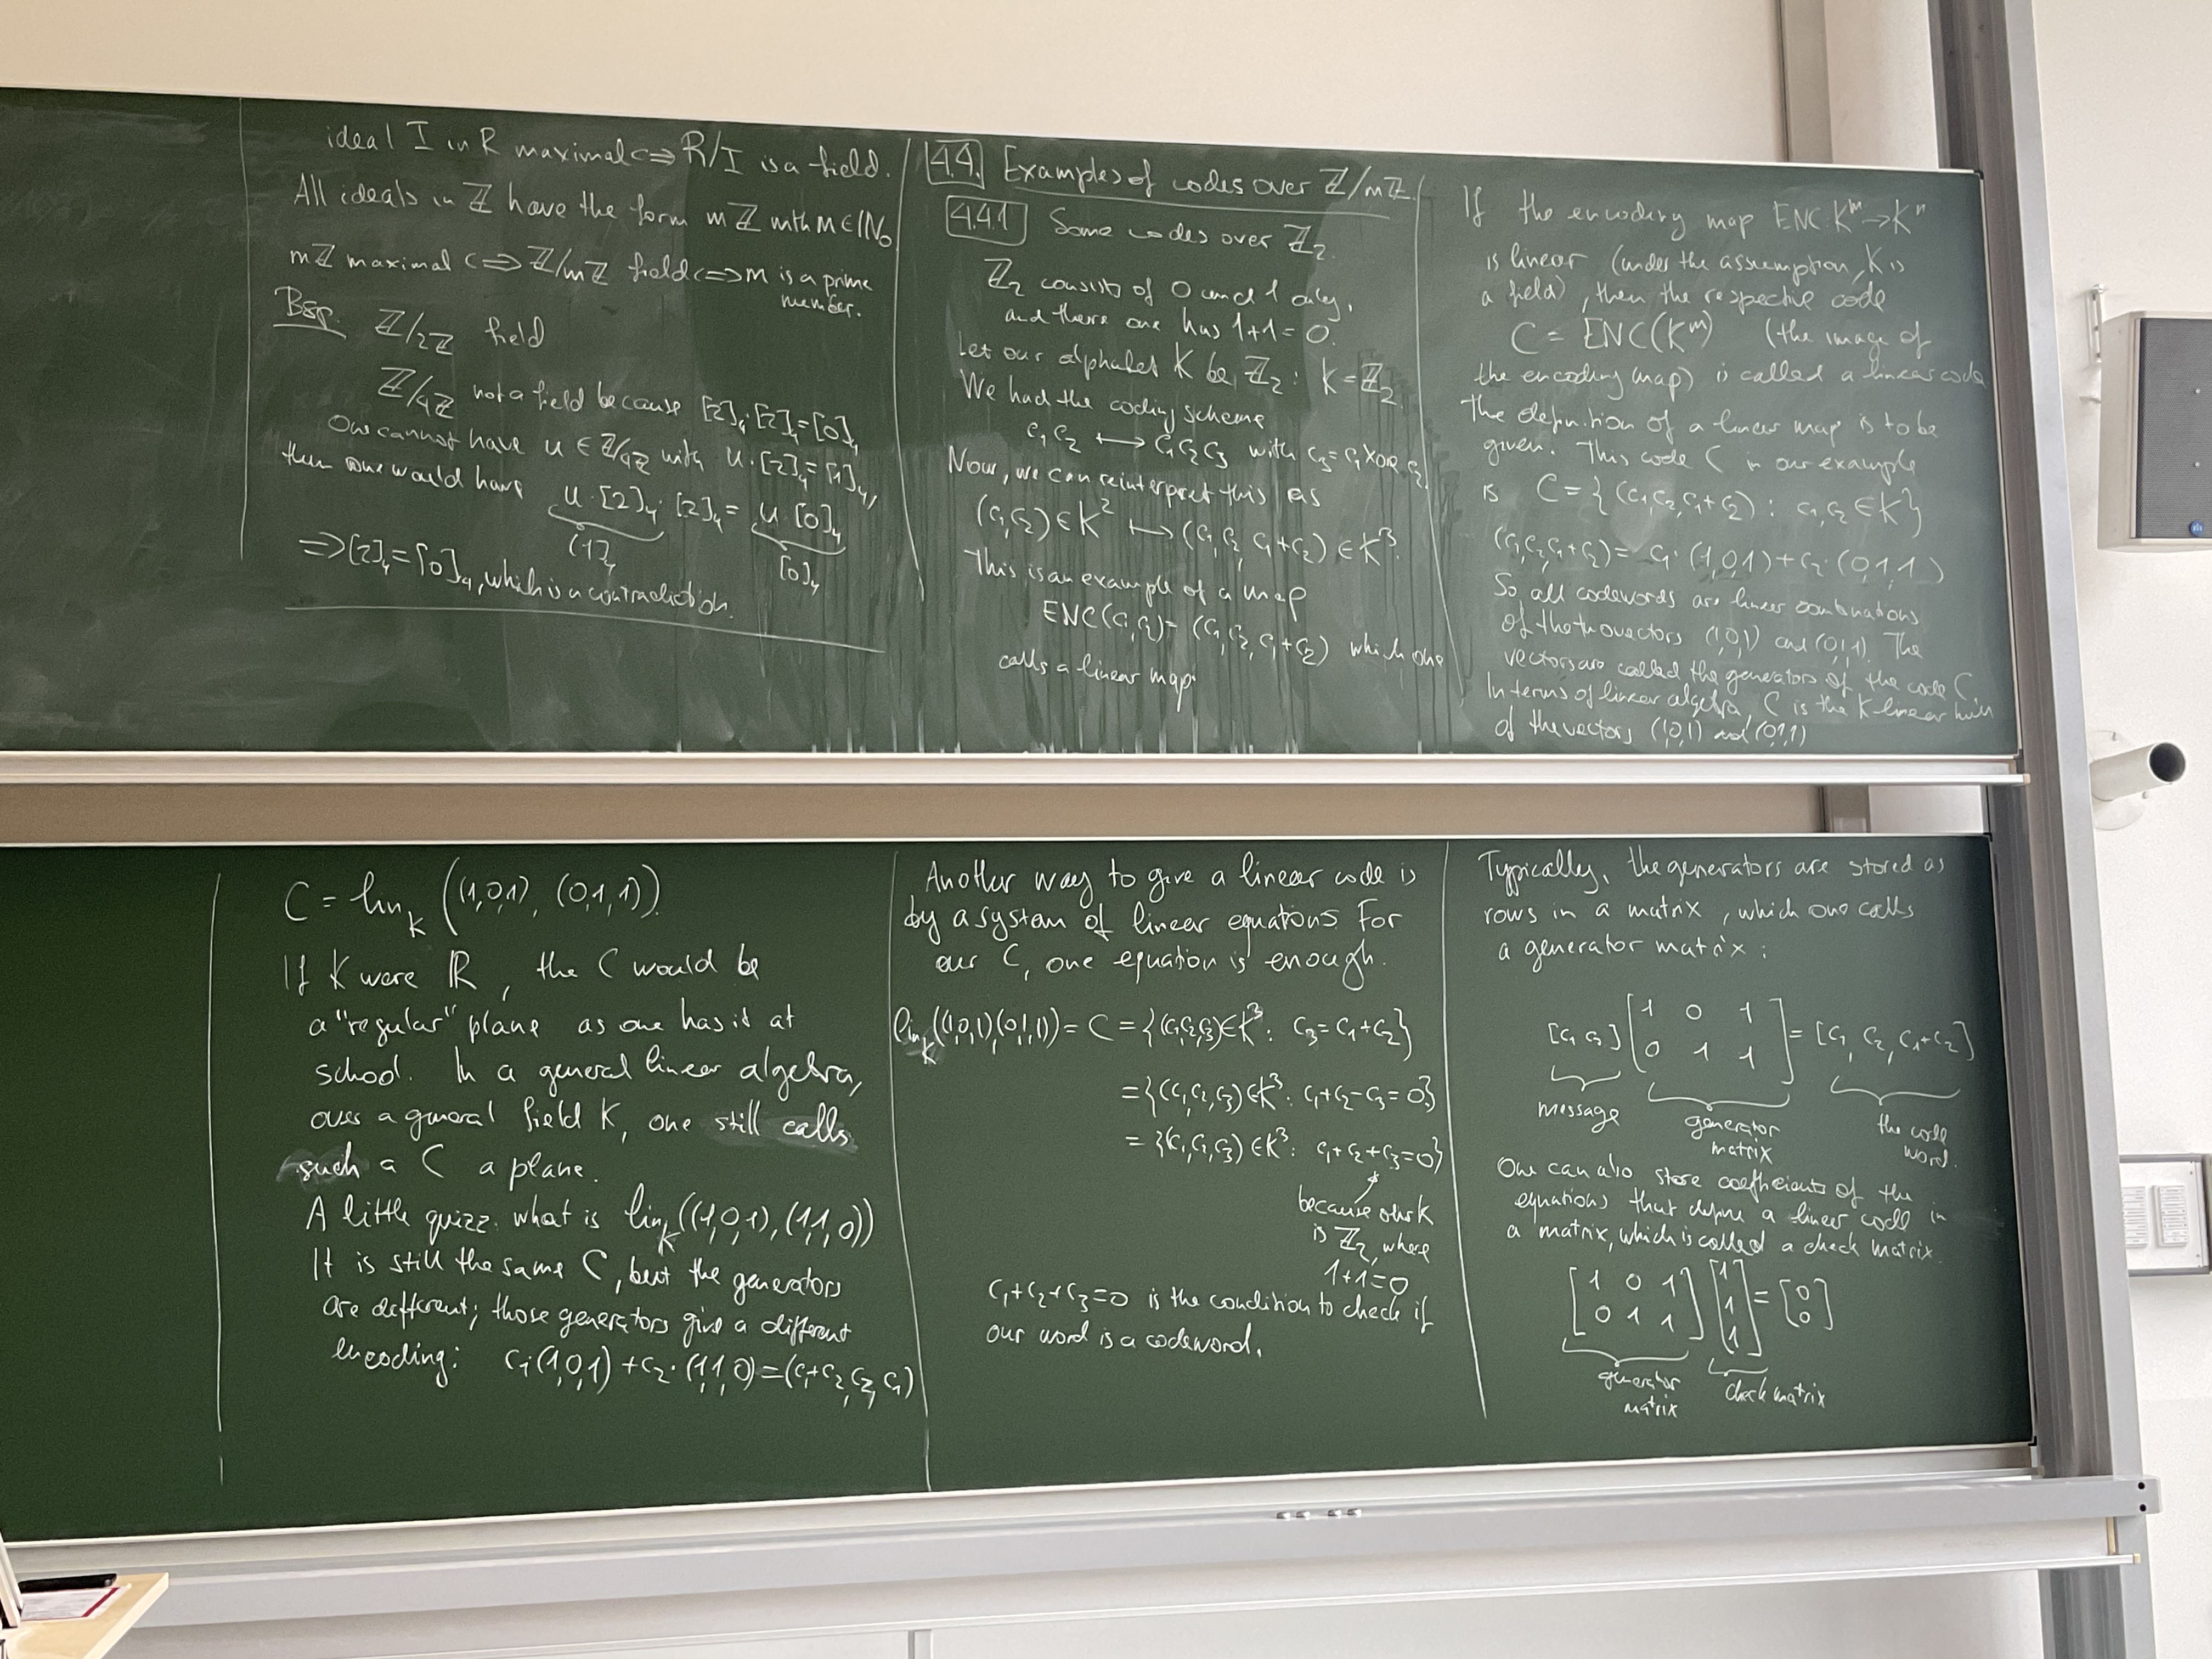 ideal I in R maximal <=> R/I is a field.
All ideals in ℤ have the form mℤ with m∈ℕ₀
mℤ maximal <=> ℤ/mℤ field <=> m is a prime
member.
Bsp. ℤ/2ℤ field
ℤ/4ℤ not a field because [2]₄·[2]₄=[0]₄
One cannot have u ∈ ℤ/4ℤ with u·[2]₄=[1]₄,
then one would have u·[2]₄·[2]₄ = u·[0]₄
[1]₄ [0]₄
=> [2]₄=[0]₄, which is a contradiction.
4.4. Examples of codes over ℤ/mℤ.
4.4.1 Some codes over ℤ₂.
ℤ₂ consists of 0 and 1 only,
and there one has 1+1=0.
Let our alphabet K be ℤ₂: K=ℤ₂.
We had the coding scheme
c₁c₂ ↦ c₁c₂c₃ with c₃=c₁ XOR c₂.
Now, we can reinterpret this as
(c₁,c₂)∈K² ↦ (c₁,c₂,c₁+c₂)∈K³.
This is an example of a map
ENC(c₁,c₂)=(c₁,c₂,c₁+c₂) which one
calls a linear map.
If the encoding map ENC: Kᵐ→Kⁿ
is linear (under the assumption, K is
a field), then the respective code
C = ENC(Kᵐ) (the image of
the encoding map) is called a linear code.
The definition of a linear map is to be
given. This code C in our example
is C={(c₁,c₂,c₁+c₂): c₁,c₂∈K}
(c₁,c₂,c₁+c₂)= c₁·(1,0,1)+c₂·(0,1,1)
So all codewords are linear combinations
of the two vectors (1,0,1) and (0,1,1). The
vectors are called the generators of the code C.
In terms of linear algebra, C is the K-linear hull
of the vectors (1,0,1) and (0,1,1)
C = lin_K ((1,0,1), (0,1,1)).
If K were ℝ, the C would be
a "regular" plane as one has it at
school. In a general linear algebra,
over a general field K, one still calls
such a C a plane.
A little quizz: what is lin_K((1,0,1),(1,1,0))
It is still the same C, but the generators
are different; those generators give a different
encoding: c₁(1,0,1)+c₂·(1,1,0)=(c₁+c₂,c₂,c₁)
Another way to give a linear code is
by a system of linear equations. For
our C, one equation is enough.
lin_K((1,0,1),(0,1,1))= C = {(c₁,c₂,c₃)∈K³: c₃=c₁+c₂}
={(c₁,c₂,c₃)∈K³: c₁+c₂-c₃=0}
={(c₁,c₂,c₃)∈K³: c₁+c₂+c₃=0}
because our K
is ℤ₂, where
1+1=0
c₁+c₂+c₃=0 is the condition to check if
our word is a codeword.
Typically, the generators are stored as
rows in a matrix, which one calls
a generator matrix:
[c₁ c₂] [1 0 1; 0 1 1] = [c₁, c₂, c₁+c₂]
message generator matrix the code word.
One can also store coefficients of the
equations that define a linear code in
a matrix, which is called a check matrix.
[1 0 1; 0 1 1] [1; 1; 1] = [0; 0]
generator matrix check matrix